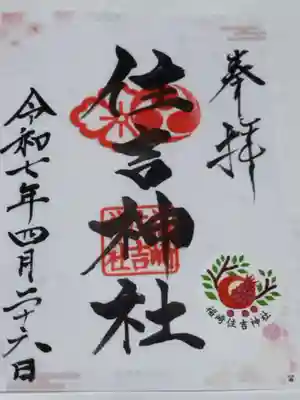 奉拝
住吉神社
令和七年四月二十六日
福崎住吉神社